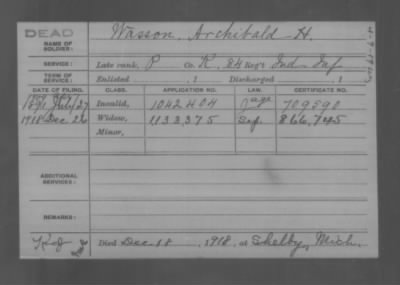 DEAD
NAME OF SOLDIER:
Wasson, Archibald H.
SERVICE:
Late rank, P Co. K, 84 Reg't Ind Inf
TERM OF SERVICE:
Enlisted , 1 Discharged , 1
DATE OF FILING. CLASS. APPLICATION NO. LAW. CERTIFICATE NO.
1891 July 27 Invalid, 1042404 709590
1918 Dec 26 Widow, 1133,375 866,745
Minor,
ADDITIONAL SERVICES:
REMARKS:
Died Dec 18, 1918, at Shelby, Mich.